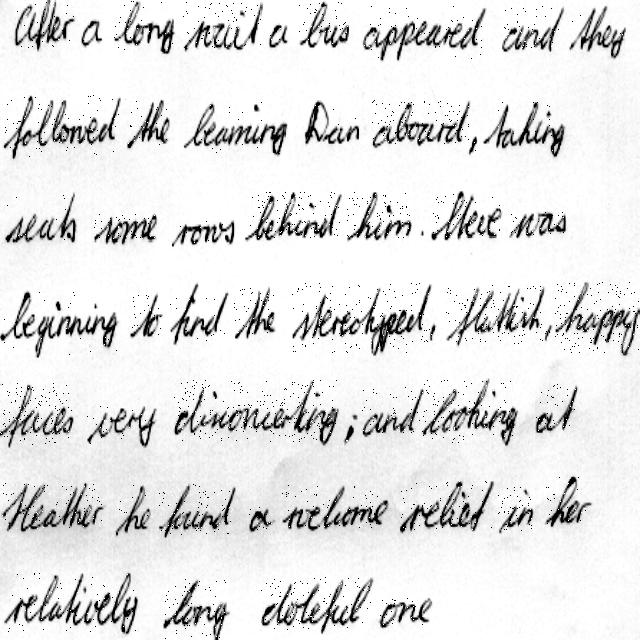 After a long wait a bus appeared and they
followed the beaming Dan aboard, taking
seats some rows behind him. Steve was
beginning to find the stereotyped, flattish, happy
faces very disconcerting; and looking at
Heather he found a welcome relief in her
relatively long doleful one